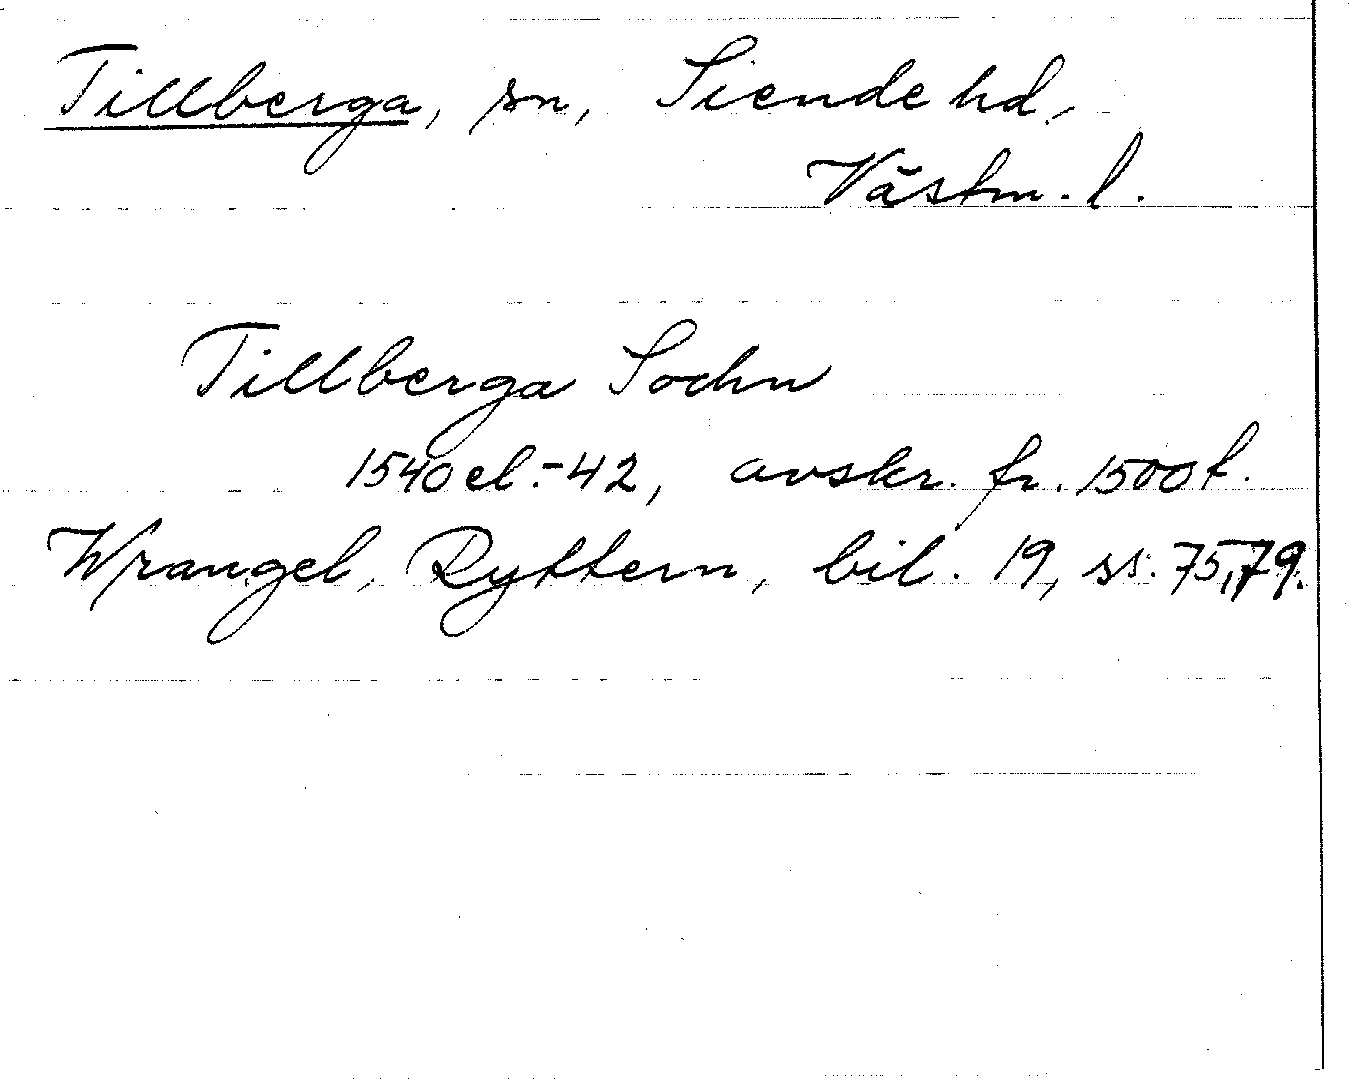 Tillberga, sn, Siende hd,
Västm. l.
Tillberga Sochn
1540 el.-42, avskr. fr. 1500t.
Wrangel, Ryttern, bil. 19, ss. 75, 79.